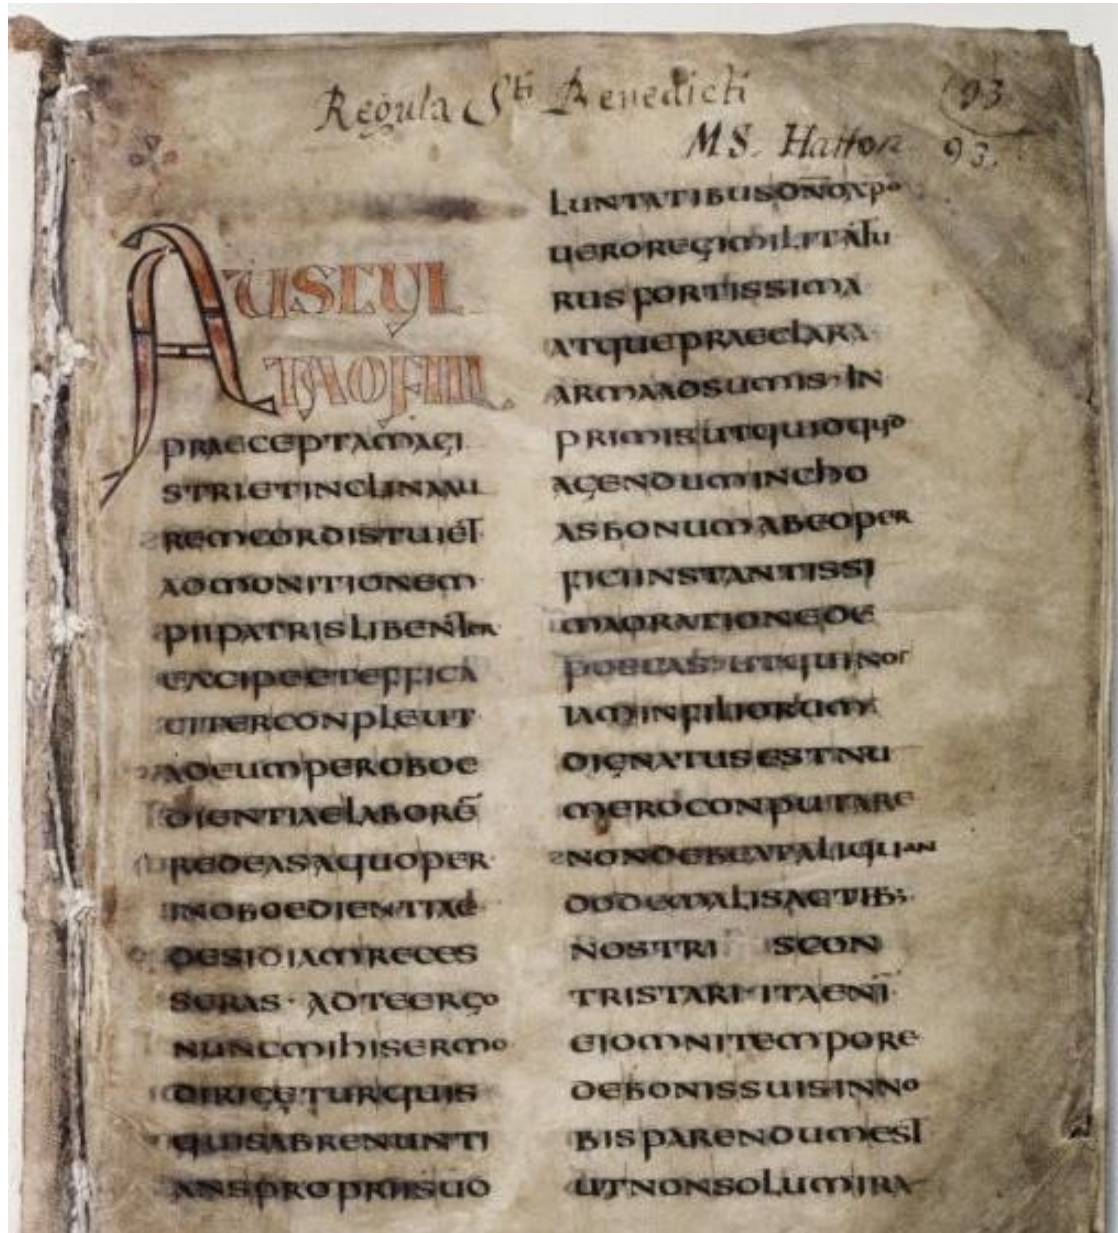 Regula Sti Benedicti
(93
MS. Hatton 93.
AUSCUL
TAOFILI
PRAECEPTAMAGI
STRIETINCLINAAU
REMCORDISTUIET
ADMONITIONEM
PIIPATRISLIBENTER
EXCIPEETEFFICA
CITERCONPLEUT
ADEUMPEROBOE
DIENTIAELABORĒ
REDEASAQUOPER
INOBOEDIENTIAE
DESIDIAMRECES
SERAS· ADTEERGO
NUNCMIHISERMO
DIRIGETURQUIS
QUISABRENUNTI
ANSPROPRIISUO
LUNTATIBUSDN̄OXPO
UEROREGIMILITATU
RUSFORTISSIMA
ATQUEPRAECLARA
ARMAADSUMIS· IN
PRIMISUTQUIDQUID
AGENDUMINCHO
ASBONUMABEOPER
FICIINSTANTISSI
MAORATIONEDE
POSCAS· UTQUINOS
IAMINFILIORUM
DIGNATUSESTNU
MEROCONPUTARE
NONDEBEATALIQUAN
DODEMALISACTIB;
NOSTRI SCON
TRISTARI· ITAENI̅
EIOMNITEMPORE
DEBONISSUISINNO
BISPARENDUMEST
UTNONSOLUMIRA